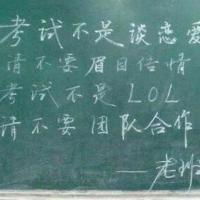 考试不是谈恋爱
请不要眉目传情
考试不是LOL
请不要团队合作
——老班